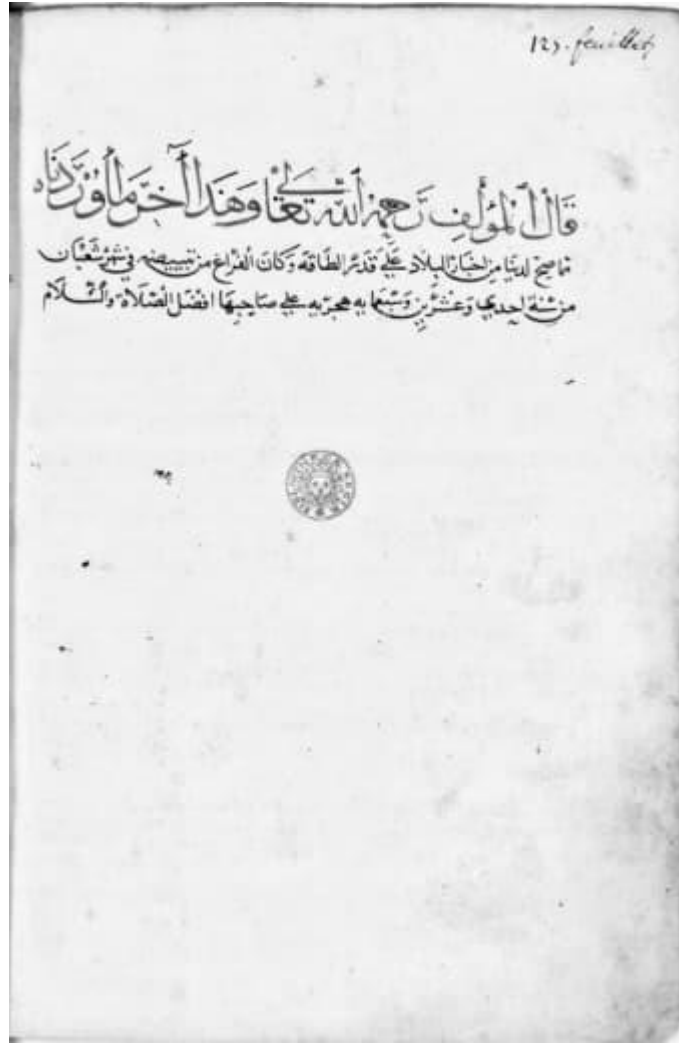 125. feuillets
قال المؤلف رحمه الله تعالي وهذا آخر ما أوردناه
مما صح لدينا من اخبار البلاد علي قدر الطاقه وكان الفراغ من تبييضه في شهر شعبان
من سنة احدي وعشرين وسبعمايه هجريه علي صاحبها افضل الصلاة والسلام